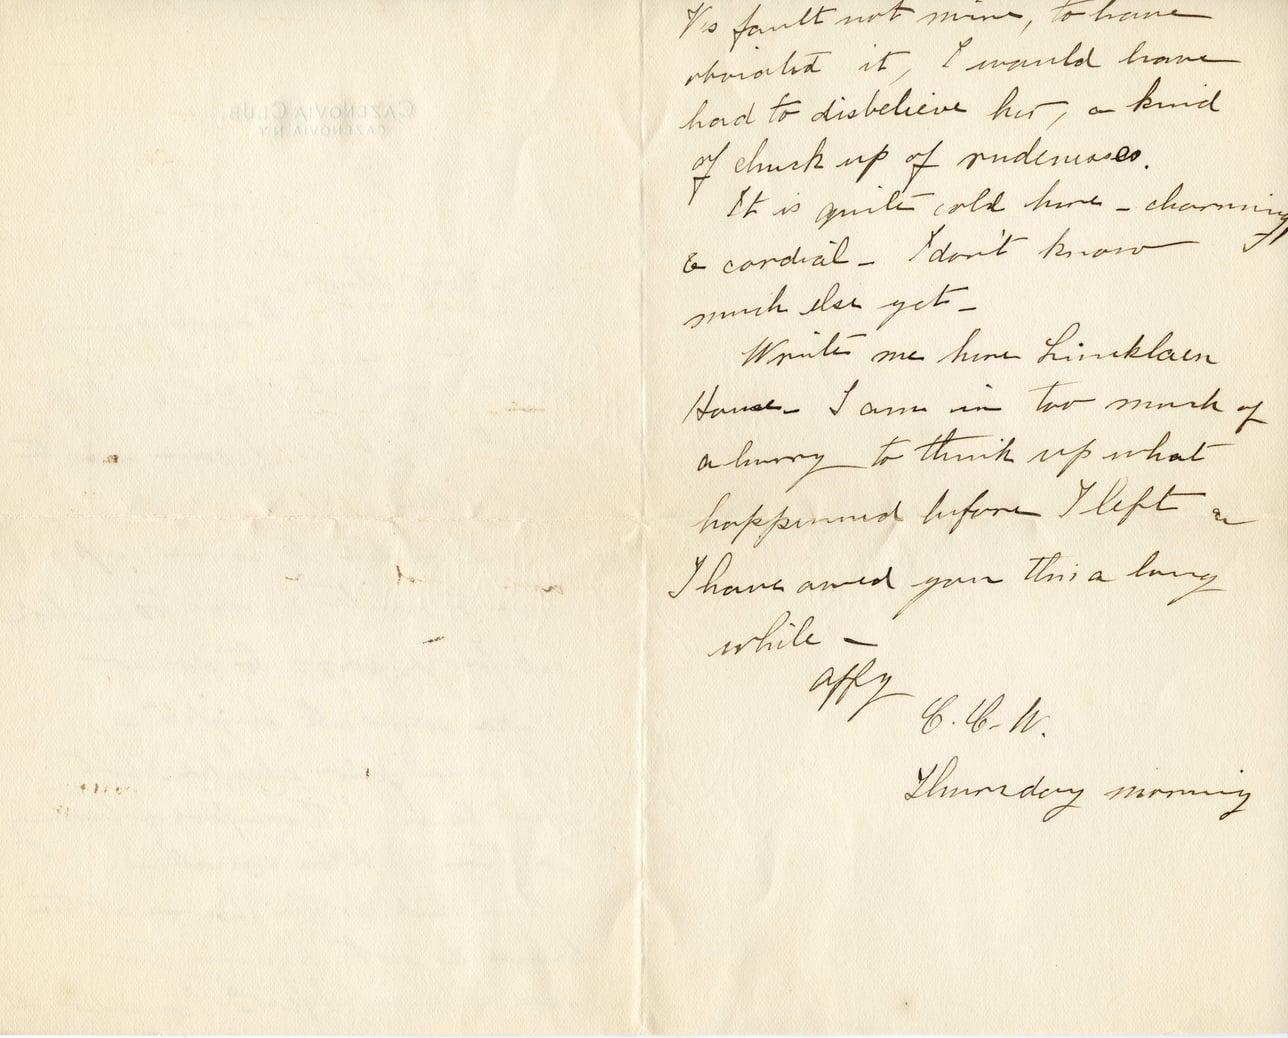 CAZENOVIA CLUB.
CAZENOVIA N.Y.
V's fault not mine, to have
obviated it, I would have
had to disbelieve her, a kind
of chuck up of rudenesses.
It is quite cold here - charming
& cordial - I don't know
much else yet -
Write me here Lincklaen
House - I am in too much of
a hurry to think up what
happened before I left &
I have owed you this a long
while -
Affy
C. C. W.
Thursday morning